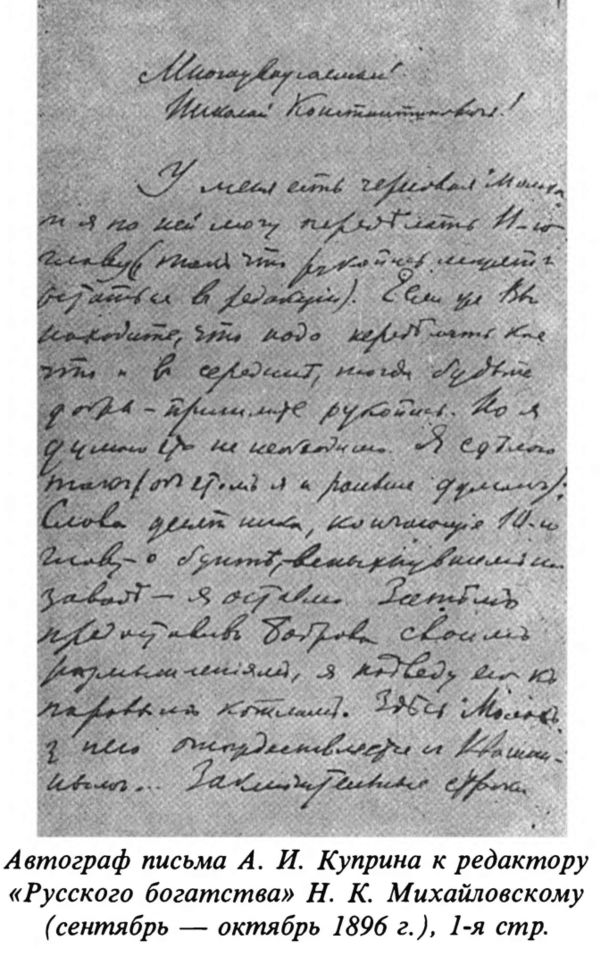 Многоуважаемый
Николай Константинович!
У меня есть черновая Молоха
и я по ней могу передѣлать 11-ю
главу (такъ что рукопись можетъ
остаться в редакціи). Если же Вы
находите, что надо передѣлать кое
что и в серединѣ, тогда будьте
добры – пришлите рукопись. Но я
думаю это не необходимо. Я сдѣлаю
такъ (объ этомъ я и раньше думалъ):
Слова десятника, кончающіе 10-ю
главу – о бунтѣ, вспыхнувшемъ на
заводѣ – я оставлю. Затѣмъ
предоставивъ Боброва своимъ
размышленіямъ, я подведу его къ
паровымъ котламъ. Здѣсь Молохъ
у него отождествляется съ Квашни-
нымъ... Заключительные строки
Автограф письма А. И. Куприна к редактору
«Русского богатства» Н. К. Михайловскому
(сентябрь — октябрь 1896 г.), 1-я стр.